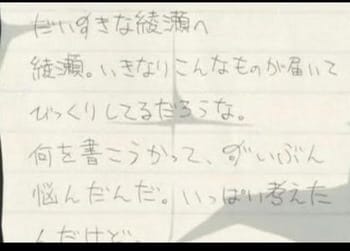 だいすきな綾瀬へ
綾瀬。いきなりこんなものが届いて
びっくりしてるだろうな。
何を書こうかって、ずいぶん
悩んだんだ。いっぱい考えた
んだけど。